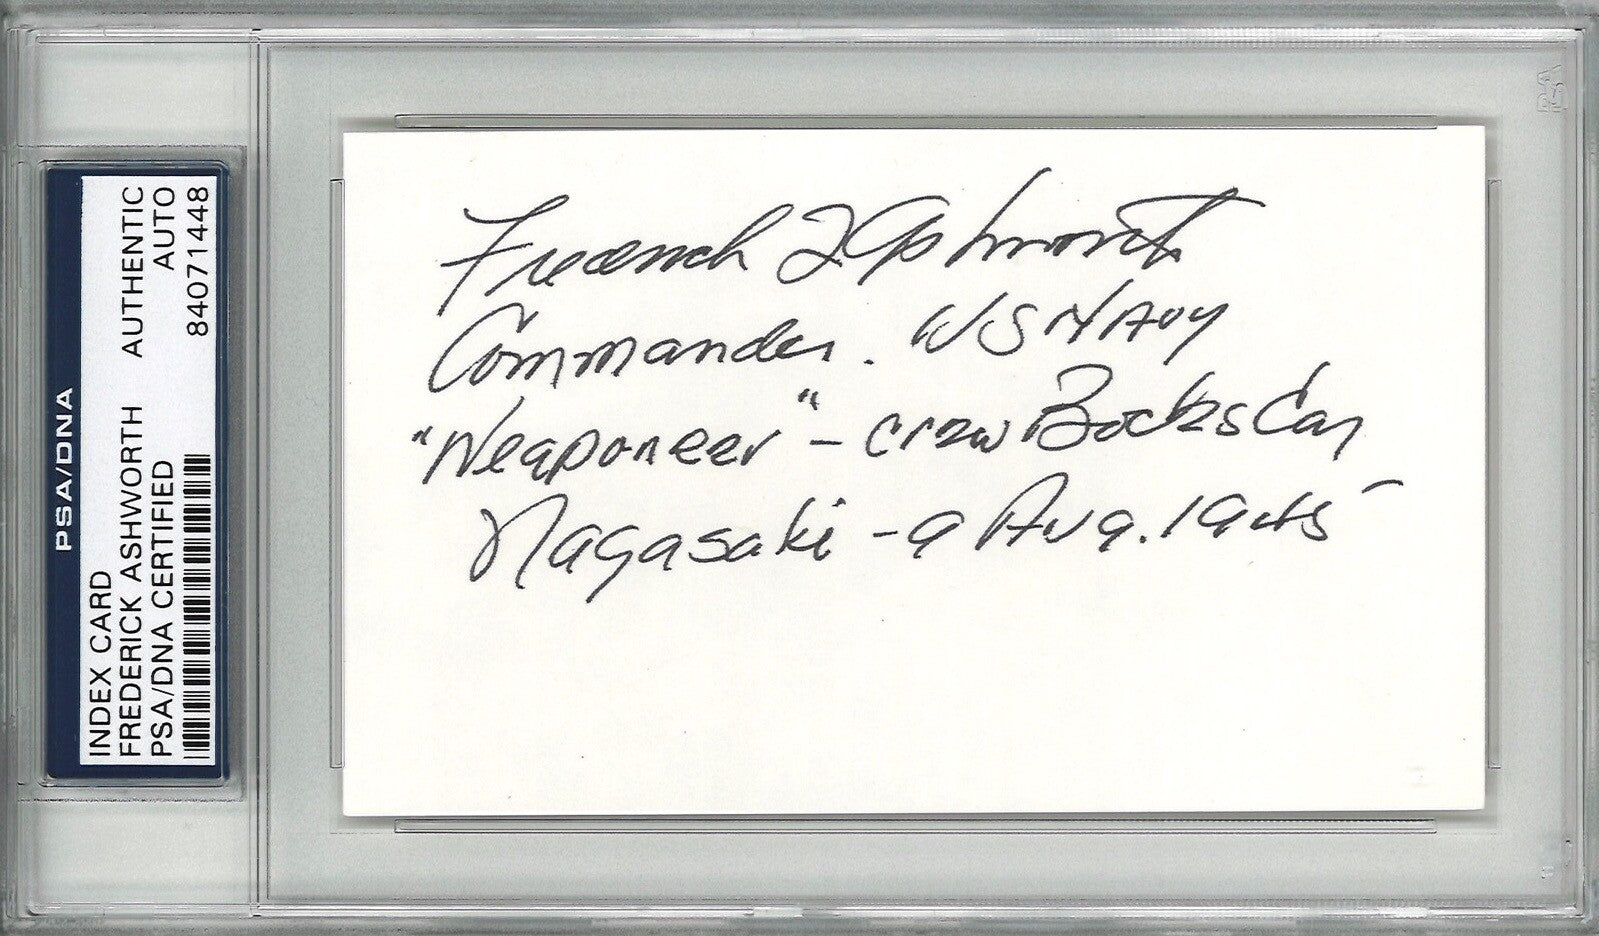 PSA/DNA
INDEX CARD
FREDERICK ASHWORTH AUTHENTIC
PSA/DNA CERTIFIED AUTO
84071448
Frederick L Ashworth
Commander. US NAVY
"Weaponeer" - crew Bocks Car
Nagasaki - 9 Aug. 1945 -
PSA